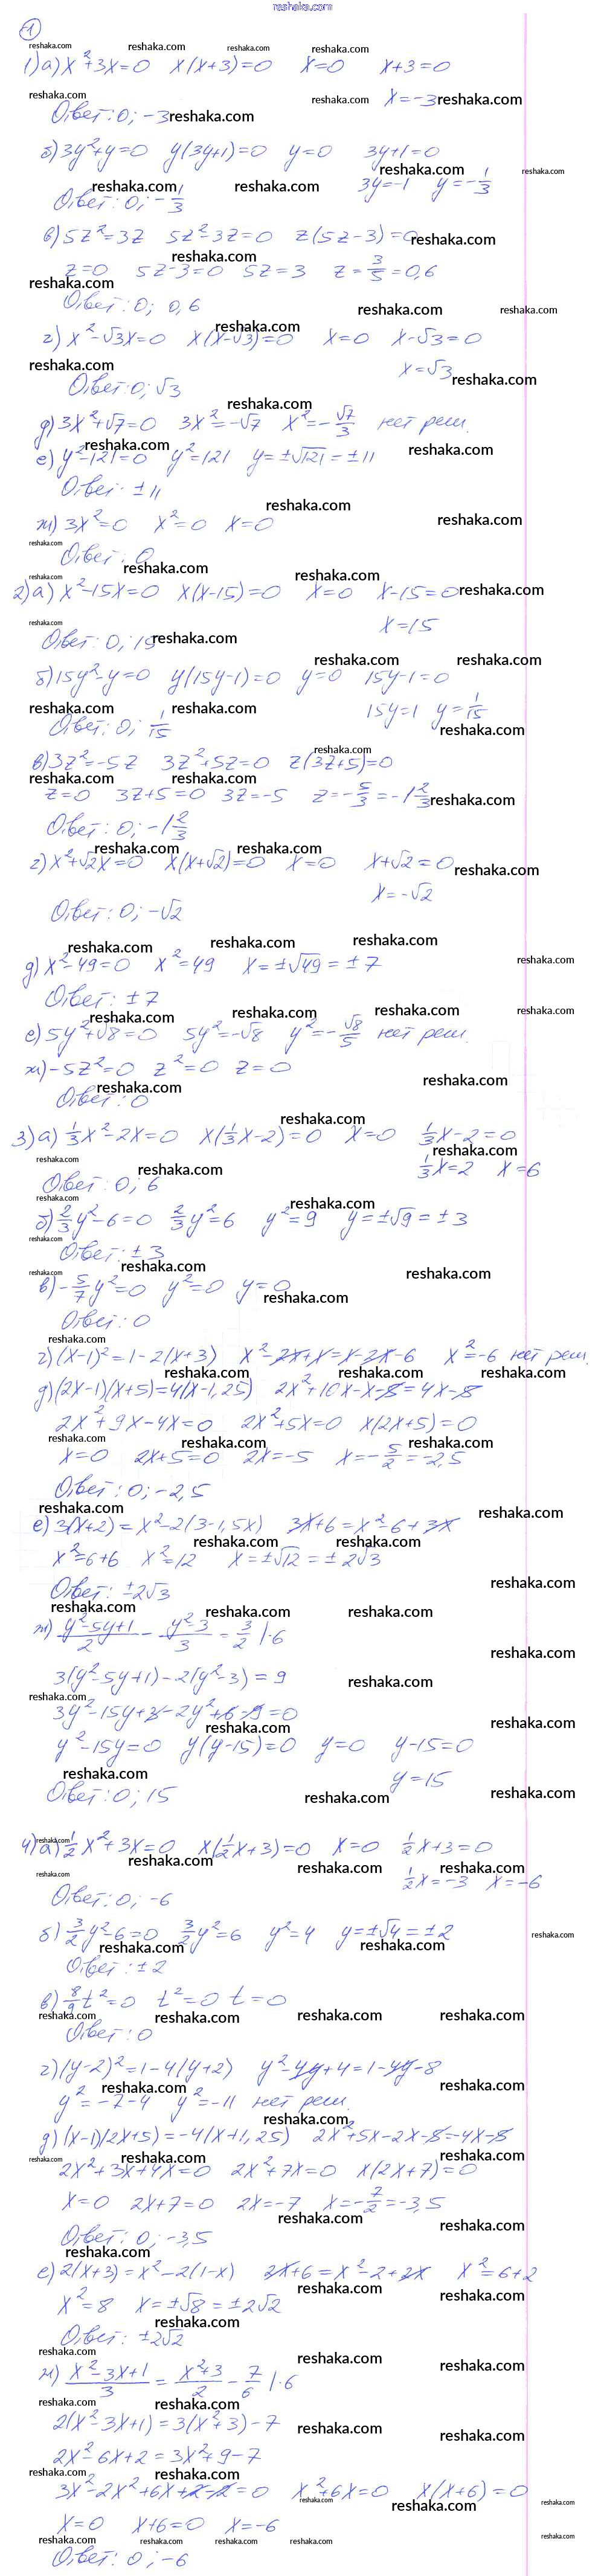 reshaka.com
1
1) а) x²+3x=0 x(x+3)=0 x=0 x+3=0
x=-3
Ответ: 0; -3
б) 3y²+y=0 y(3y+1)=0 y=0 3y+1=0
3y=-1 y=-1/3
Ответ: 0; -1/3
в) 5z²=3z 5z²-3z=0 z(5z-3)=0
z=0 5z-3=0 5z=3 z=3/5=0,6
Ответ: 0; 0,6
г) x²-√3x=0 x(x-√3)=0 x=0 x-√3=0
x=√3
Ответ: 0; √3
д) 3x²+√7=0 3x²=-√7 x²=-√7/3 нет реш.
е) y²-121=0 y²=121 y=±√121=±11
Ответ: ±11
ж) 3x²=0 x²=0 x=0
Ответ: 0
2) а) x²-15x=0 x(x-15)=0 x=0 x-15=0
x=15
Ответ: 0; 15
б) 15y²-y=0 y(15y-1)=0 y=0 15y-1=0
15y=1 y=1/15
Ответ: 0; 1/15
в) 3z²=-5z 3z²+5z=0 z(3z+5)=0
z=0 3z+5=0 3z=-5 z=-5/3=-1 2/3
Ответ: 0; -1 2/3
г) x²+√2x=0 x(x+√2)=0 x=0 x+√2=0
x=-√2
Ответ: 0; -√2
д) x²-49=0 x²=49 x=±√49=±7
Ответ: ±7
е) 5y²+√8=0 5y²=-√8 y²=-√8/5 нет реш.
ж) -5z²=0 z²=0 z=0
Ответ: 0
3) а) 1/3x²-2x=0 x(1/3x-2)=0 x=0 1/3x-2=0
1/3x=2 x=6
Ответ: 0; 6
б) 2/3y²-6=0 2/3y²=6 y²=9 y=±√9=±3
Ответ: ±3
в) -5/7y²=0 y²=0 y=0
Ответ: 0
г) (x-1)²=1-2(x+3) x²-2x+1=1-2x-6 x²=-6 нет реш.
д) (2x-1)(x+5)=4(x-1,25) 2x²+10x-x-5=4x-5
2x²+9x-4x=0 2x²+5x=0 x(2x+5)=0
x=0 2x+5=0 2x=-5 x=-5/2=-2,5
Ответ: 0; -2,5
е) 3(x+2)=x²-2(3-1,5x) 3x+6=x²-6+3x
x²=6+6 x²=12 x=±√12=±2√3
Ответ: ±2√3
ж) (y²-5y+1)/2 - (y²-3)/3 = 3/2 |·6
3(y²-5y+1)-2(y²-3)=9
3y²-15y+3-2y²+6-9=0
y²-15y=0 y(y-15)=0 y=0 y-15=0
y=15
Ответ: 0; 15
4) а) 1/2x²+3x=0 x(1/2x+3)=0 x=0 1/2x+3=0
1/2x=-3 x=-6
Ответ: 0; -6
б) 3/2y²-6=0 3/2y²=6 y²=4 y=±√4=±2
Ответ: ±2
в) 8/9t²=0 t²=0 t=0
Ответ: 0
г) (y-2)²=1-4(y+2) y²-4y+4=1-4y-8
y²=-7-4 y²=-11 нет реш.
д) (x-1)(2x+5)=-4(x+1,25) 2x²+5x-2x-5=-4x-5
2x²+3x+4x=0 2x²+7x=0 x(2x+7)=0
x=0 2x+7=0 2x=-7 x=-7/2=-3,5
Ответ: 0; -3,5
е) 2(x+3)=x²-2(1-x) 2x+6=x²-2+2x x²=6+2
x²=8 x=±√8=±2√2
Ответ: ±2√2
ж) (x²-3x+1)/3 = (x²+3)/2 - 7/6 |·6
2(x²-3x+1)=3(x²+3)-7
2x²-6x+2=3x²+9-7
3x²-2x²+6x+2-2=0 x²+6x=0 x(x+6)=0
x=0 x+6=0 x=-6
Ответ: 0; -6